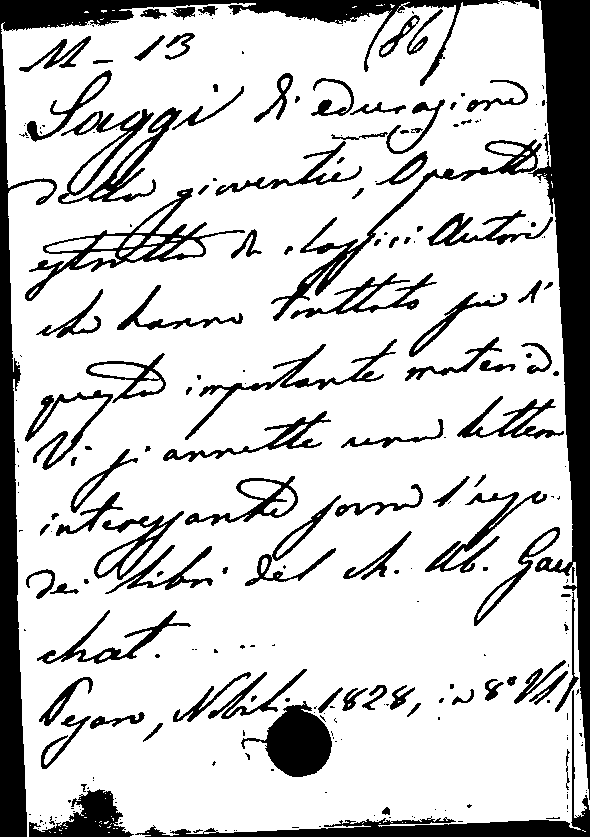 M - 13 (86)
Saggi di educazione
della gioventù, Operetta
estratta da classici Autori
che hanno trattato su d'
questa importante materia.
Vi si annette una lettera
interessante sovra l'uso
dei libri del ch. Ab. Gau
chat. .....
Pesaro, Nobili 1828, in 8°